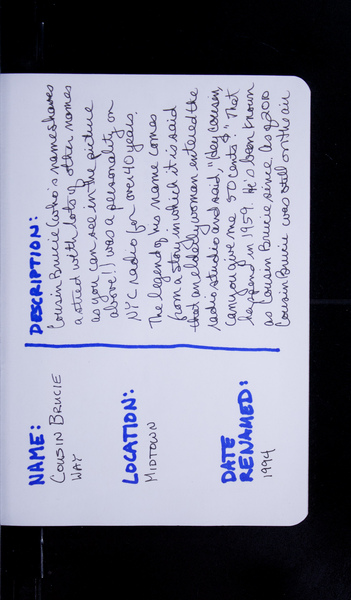 NAME:
COUSIN BRUCIE
WAY
LOCATION:
MIDTOWN
DATE
RENAMED:
1994
DESCRIPTION:
Cousin Brucie (who's name shares
a street with lots of other names
as you can see in the picture
above!) was a personality on
NYC radio for over 40 years.
The legend of his name comes
from a story in which it is said
that an elderly woman entered the
radio studio and said, "Hey Cousin,
can you give me 50 cents?" That
happened in 1959. He's been known
as Cousin Brucie since. As of 2010
Cousin Brucie was still on the air